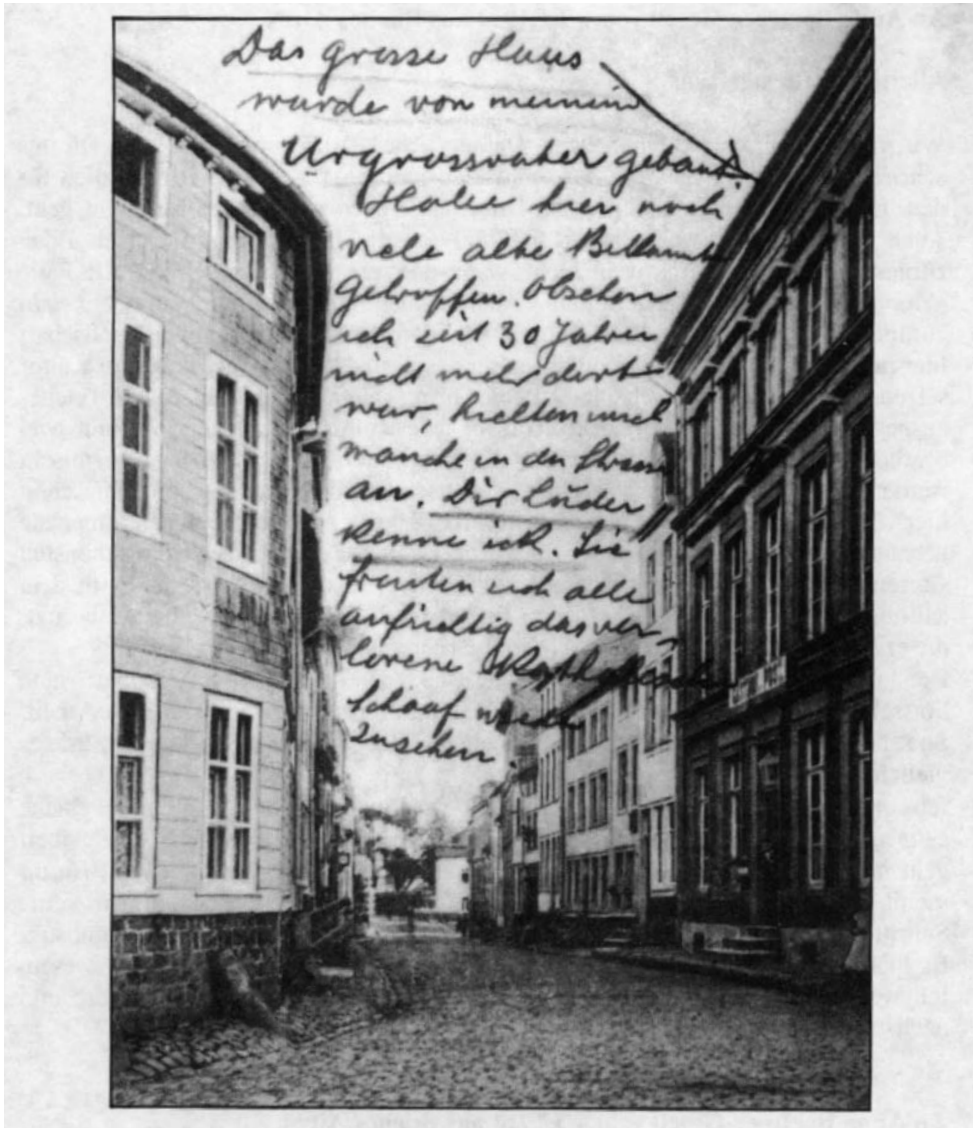 Das grosse Haus
wurde von meinem
Urgrossvater gebaut.
Habe hier noch
viele alte Bekannte
getroffen. Obschon
ich seit 30 Jahren
nicht mehr dort
war, hielten mich
manche in der Strasse
an. Dir Lüder
kenne ich. Sie
freuten sich alle
aufrichtig das ver-
lorene
Schaaf wieder
zusehen.